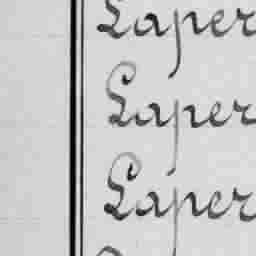 Laper
Laper
Laper